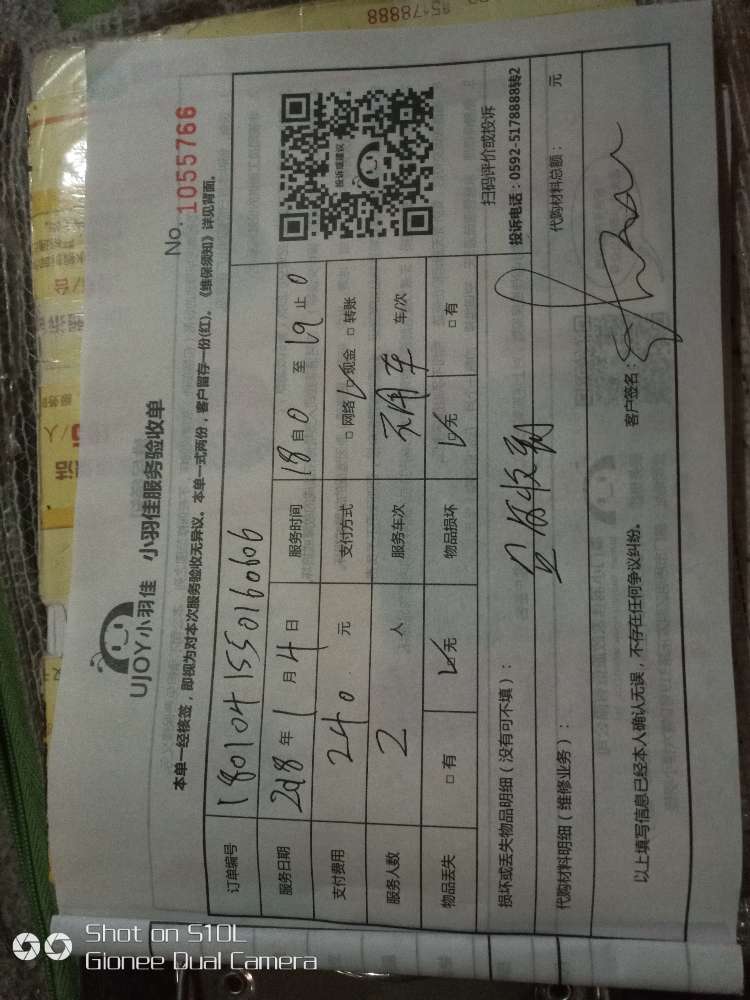 UJOY小羽佳 小羽佳服务验收单
No. 1055766
本单一经核签，即视为对本次服务验收无异议。本单一式两份，客户留存一份(红)。《维保须知》详见背面。
订单编号 180104155016060606
服务日期 2018 年 1 月 4 日 服务时间 18 自 0 至 19 止 0
支付费用 240 元 支付方式 □ 网络 ☑ 现金 □ 转账
服务人数 2 人 服务车次 不用车 车/次
物品丢失 □ 有 ☑ 无 物品损坏 ☑ 无 □ 有
投诉或建议
扫码评价或投诉
投诉电话：0592-5178888转2
损坏或丢失物品明细（没有可不填）：
代购材料明细（维修业务）：
代购材料总额： 元
以上填写信息已经本人确认无误，不存在任何争议纠纷。 客户签名：
85178888
Shot on S10L
Gionee Dual Camera